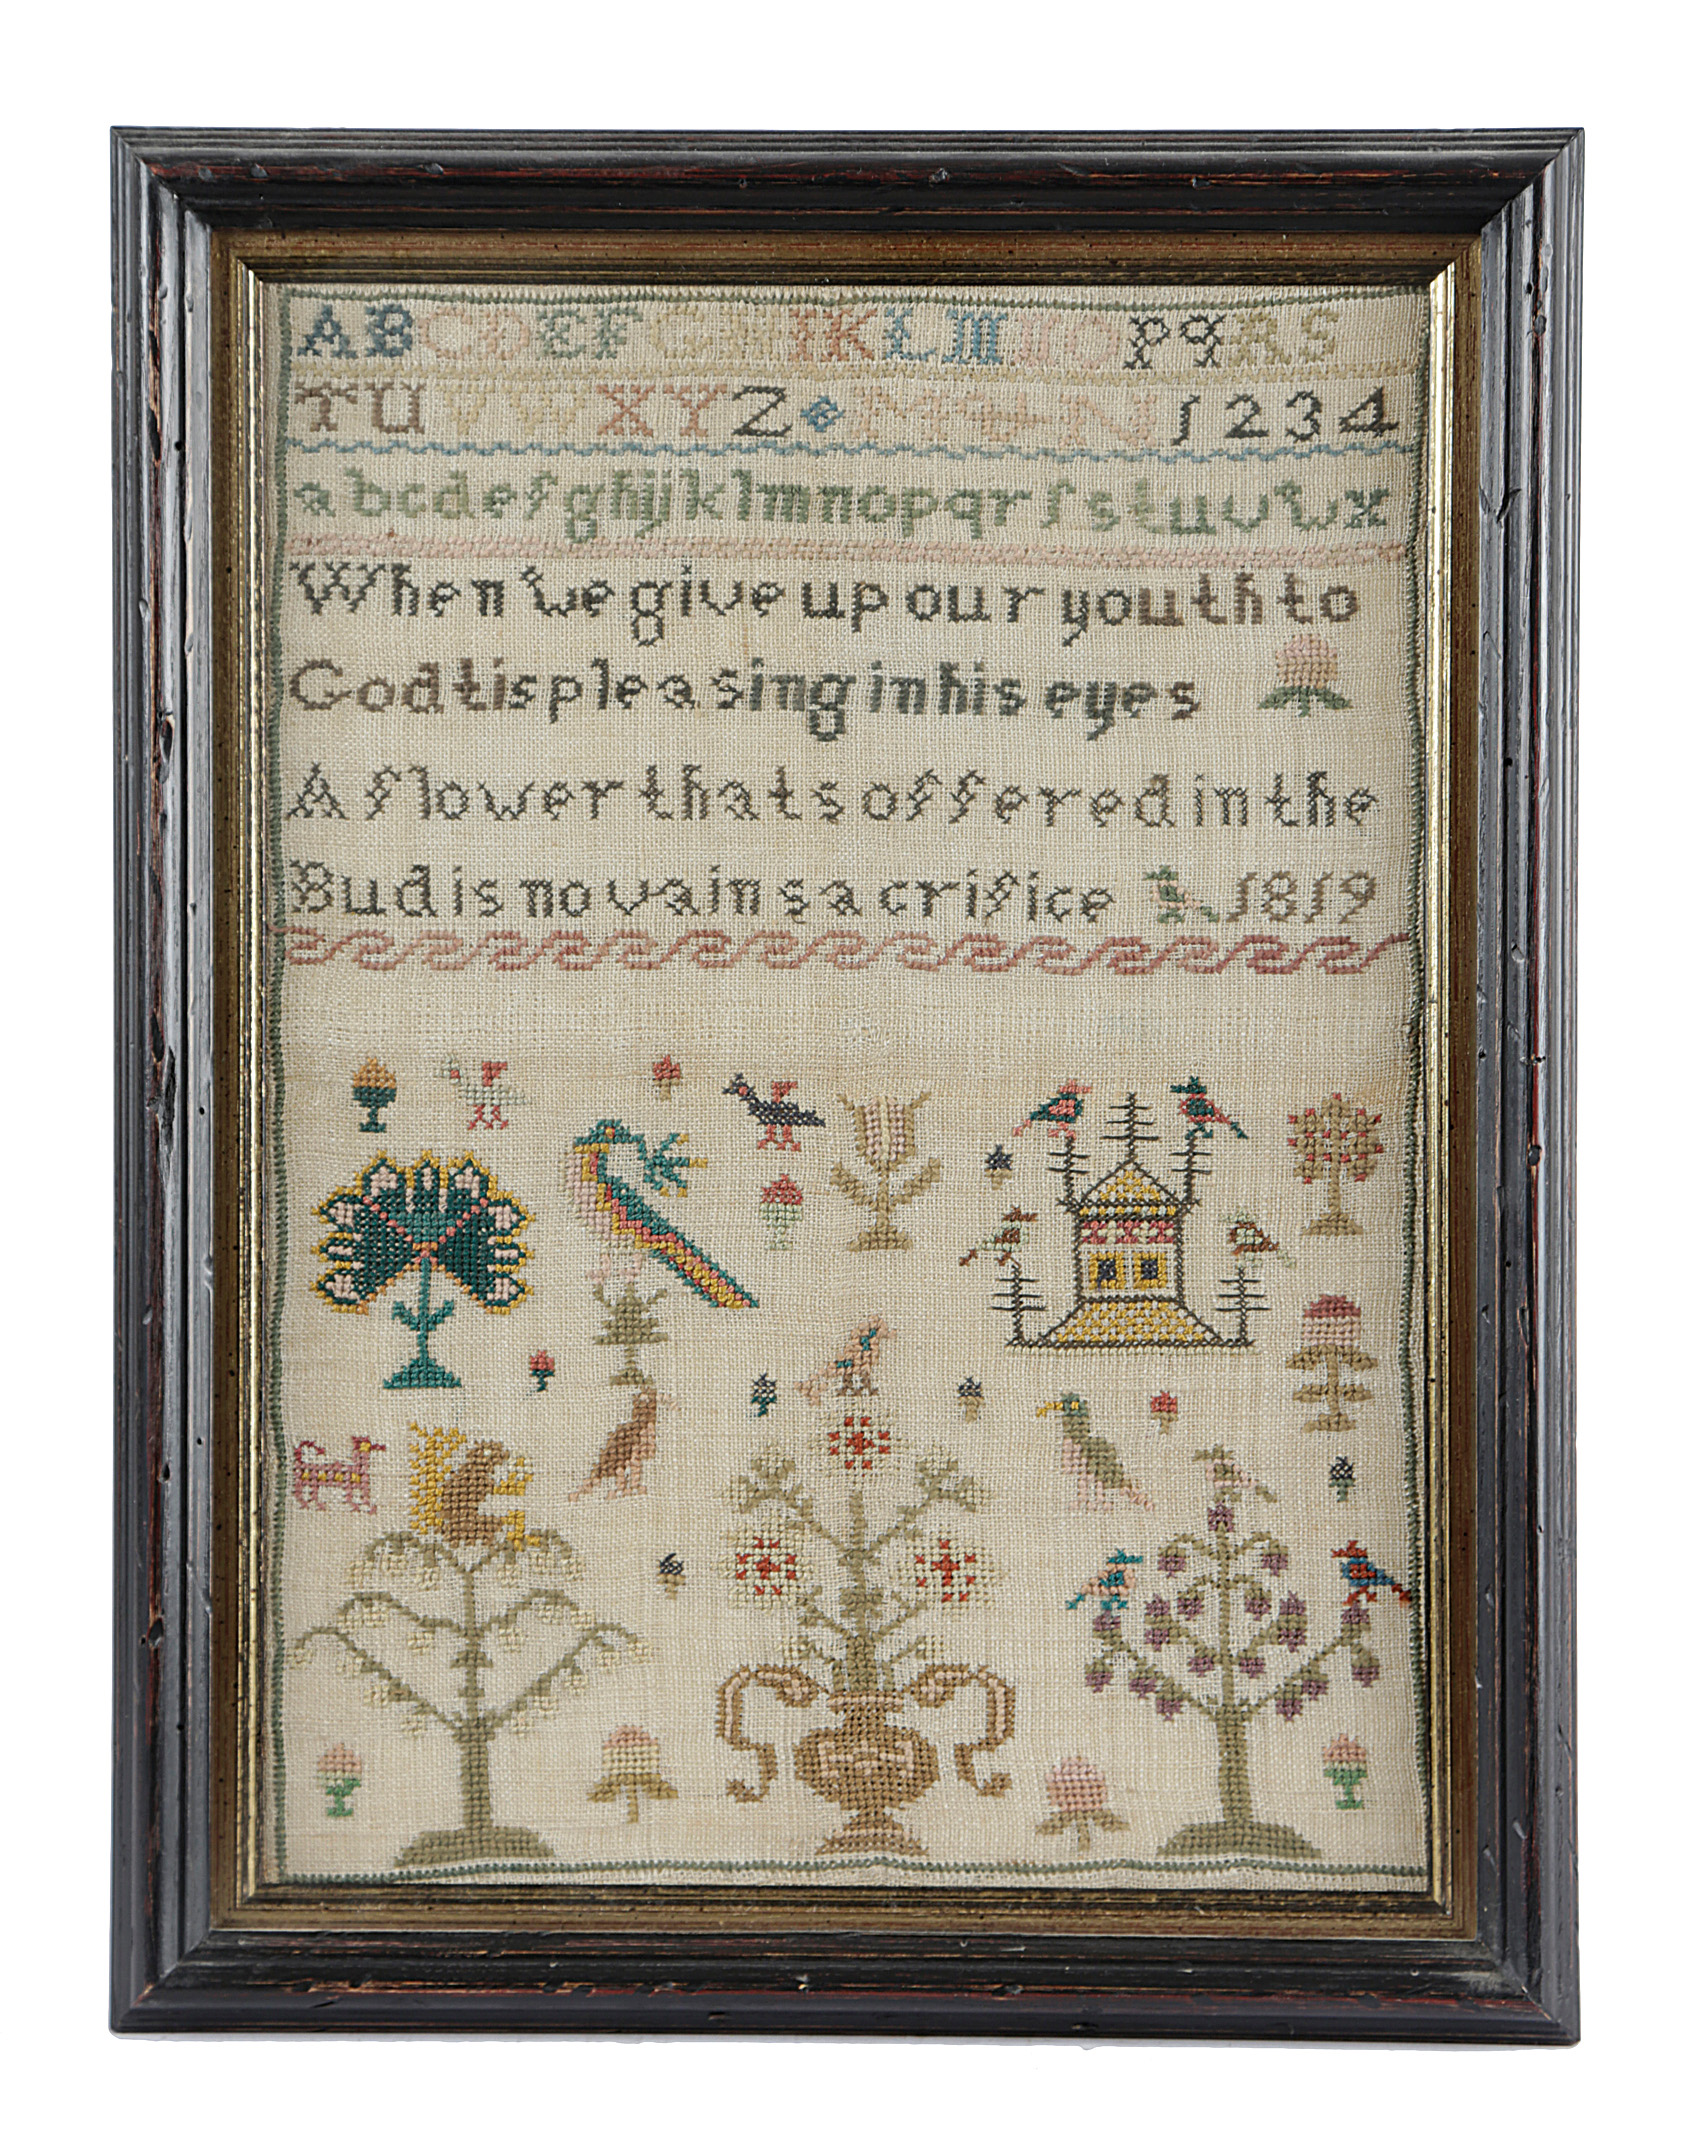 A B C D E F G H I K L M N O P q R S
T U V W X Y Z M N 1 2 3 4
a b c d e f g h i j k l m n o p q r ſ s t u v w x
When we give up our youth to
God tis pleasing in his eyes
A flower thats offered in the
Bud is no vain sacrifice 1819